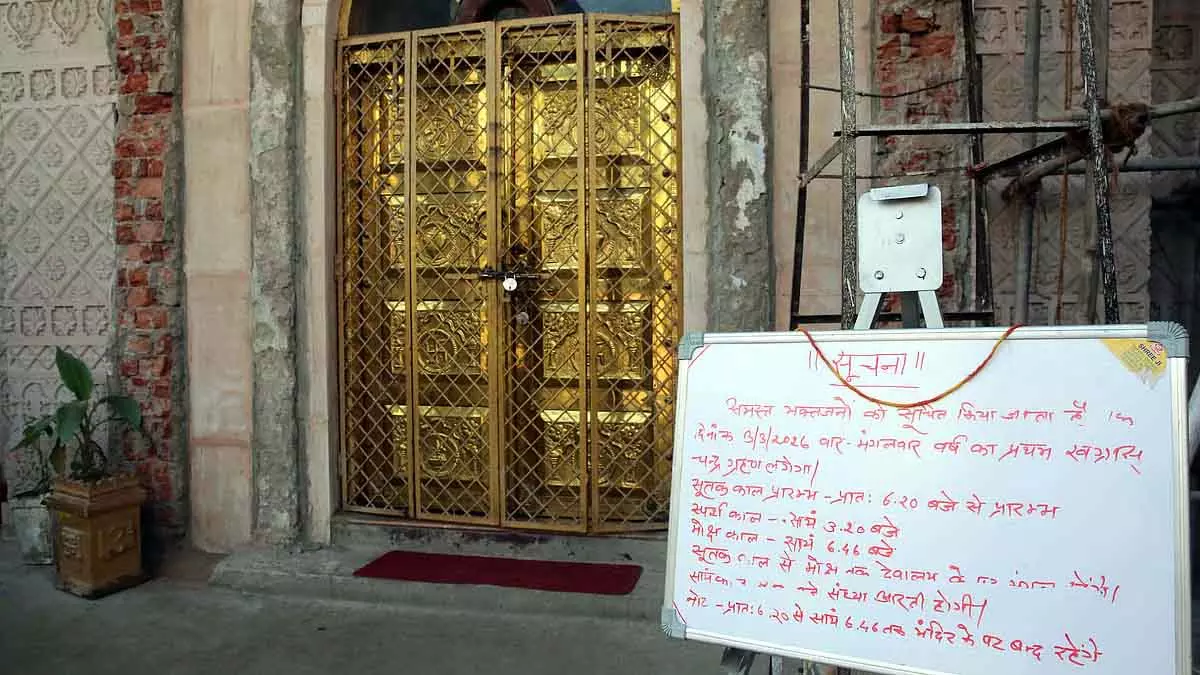 ॥ सूचना ॥
समस्त भक्तजनों को सूचित किया जाता है कि
दिनांक 3/3/2026 वार - मंगलवार वर्ष का प्रथम खग्रास
चन्द्र ग्रहण लगेगा।
सूतक काल प्रारम्भ - प्रातः 6.20 बजे से प्रारम्भ
स्पर्श काल - सायं 3.20 बजे
मोक्ष काल - सायं 6.46 बजे
सूतक काल से मोक्ष तक देवालय के
संध्या आरती होगी।
नोट - प्रातः 6.20 से सायं 6.46 तक मंदिर के पट बन्द रहेंगे